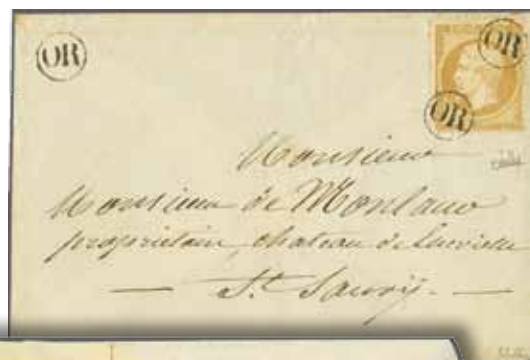 OR
OR
OR
Monsieur
Monsieur de Monlaur
propriétaire, chateau de
St. Sauvy.